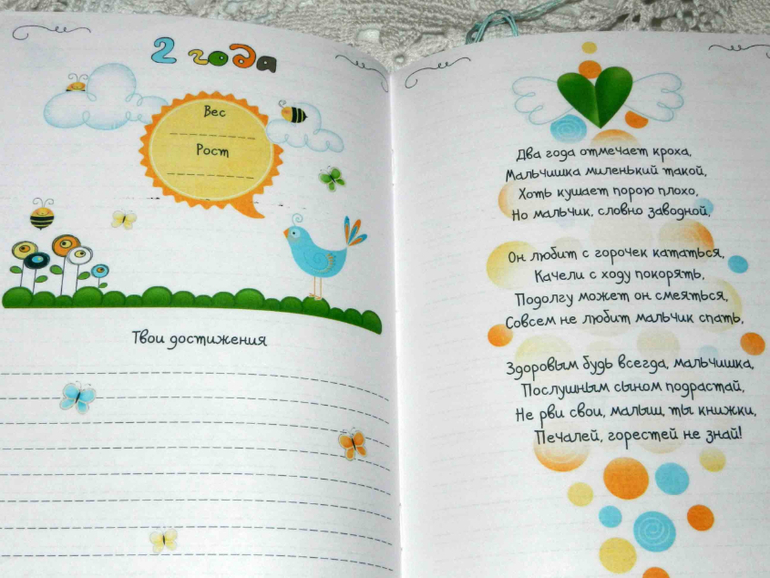 2 года
Вес
Рост
Твои достижения
Два года отмечает кроха,
Мальчишка миленький такой,
Хоть кушает порою плохо,
Но мальчик, словно заводной.
Он любит с горочек кататься,
Качели с ходу покорять,
Подолгу может он смеяться,
Совсем не любит мальчик спать.
Здоровым будь всегда, мальчишка,
Послушным сыном подрастай,
Не рви свои, малыш, ты книжки,
Печалей, горестей не знай!